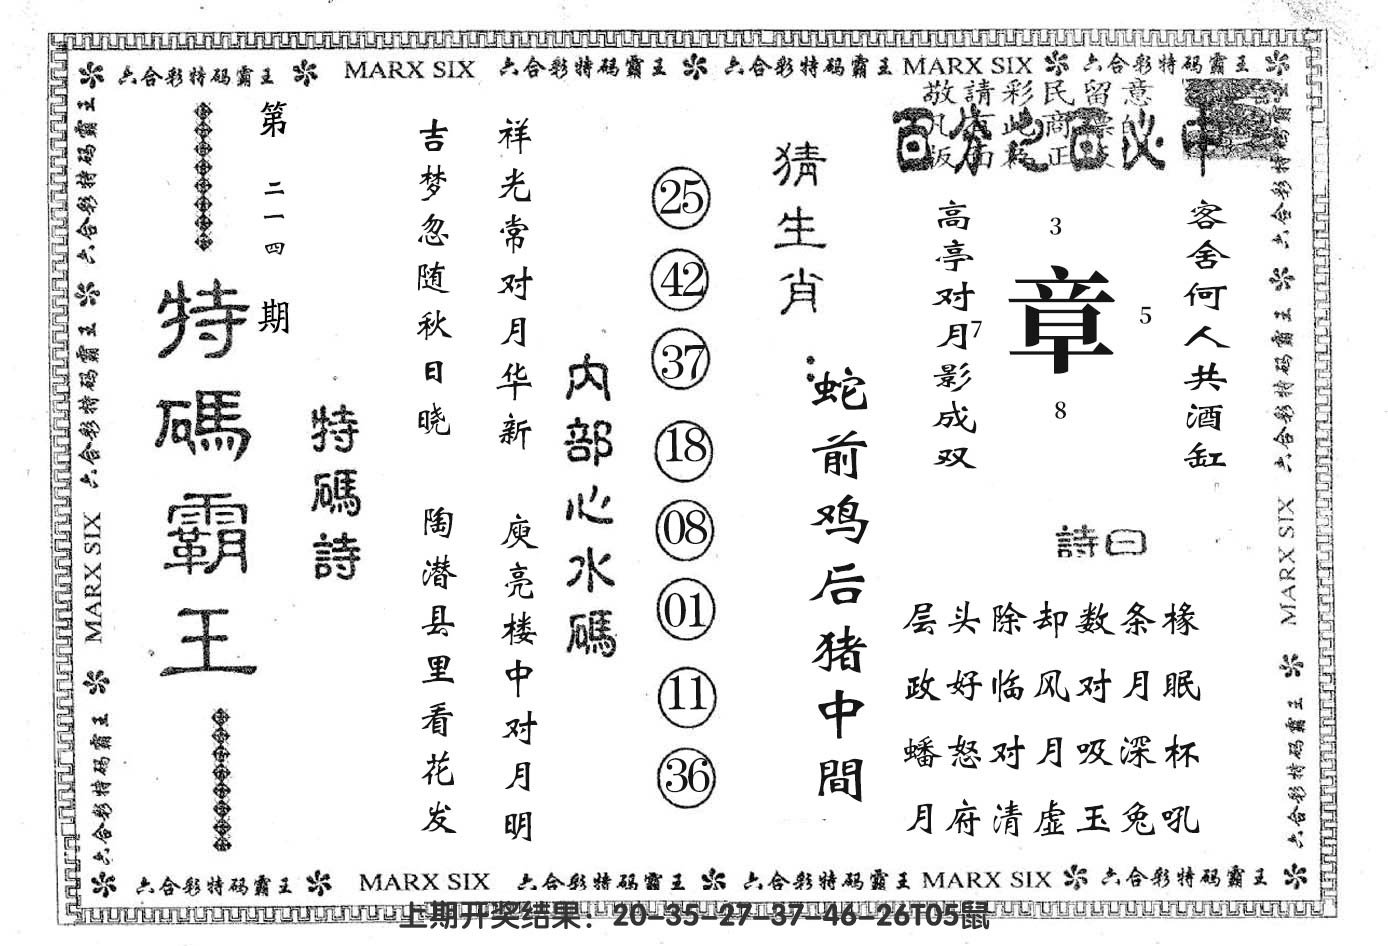 六合彩特码霸王 MARX SIX 六合彩特码霸王 六合彩特码霸王 MARX SIX 六合彩特码霸王
敬請彩民留意
百分之百必中
客舍何人共酒缸
章
3
5
7
8
高亭对月影成双
詩曰
层头除却数条椽
政好临风对月眠
蟠怒对月吸深杯
月府清虚玉兔吼
猜生肖：
蛇前鸡后猪中間
25
42
37
18
08
01
11
36
内部心水碼
祥光常对月华新
庾亮楼中对月明
吉梦忽随秋日晓
陶潜县里看花发
特碼詩
第二一四期
特碼霸王
六合彩特码霸王 六合彩特码霸王 MARX SIX 六合彩特码霸王
六合彩特码霸王 六合彩特码霸王 MARX SIX 六合彩特码霸王
六合彩特码霸王 MARX SIX 六合彩特码霸王 六合彩特码霸王 MARX SIX 六合彩特码霸王
上期开奖结果：20-35-27-37-46-26T05鼠